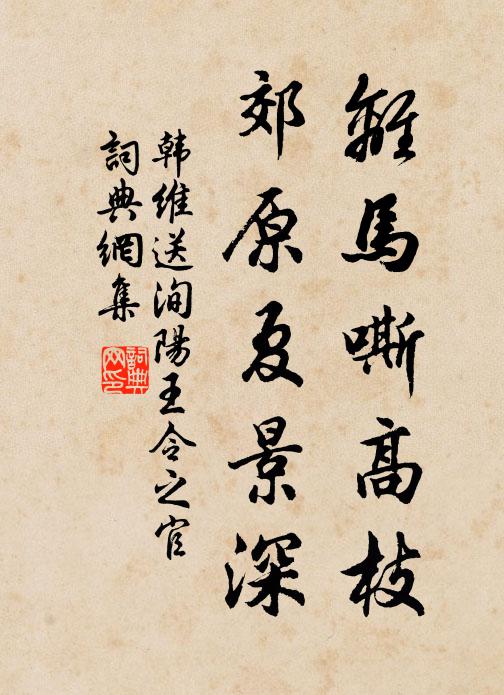 離馬嘶高枝
郊原夏景深
韩維送洵陽王令之官
詞典網集
詞典
网印